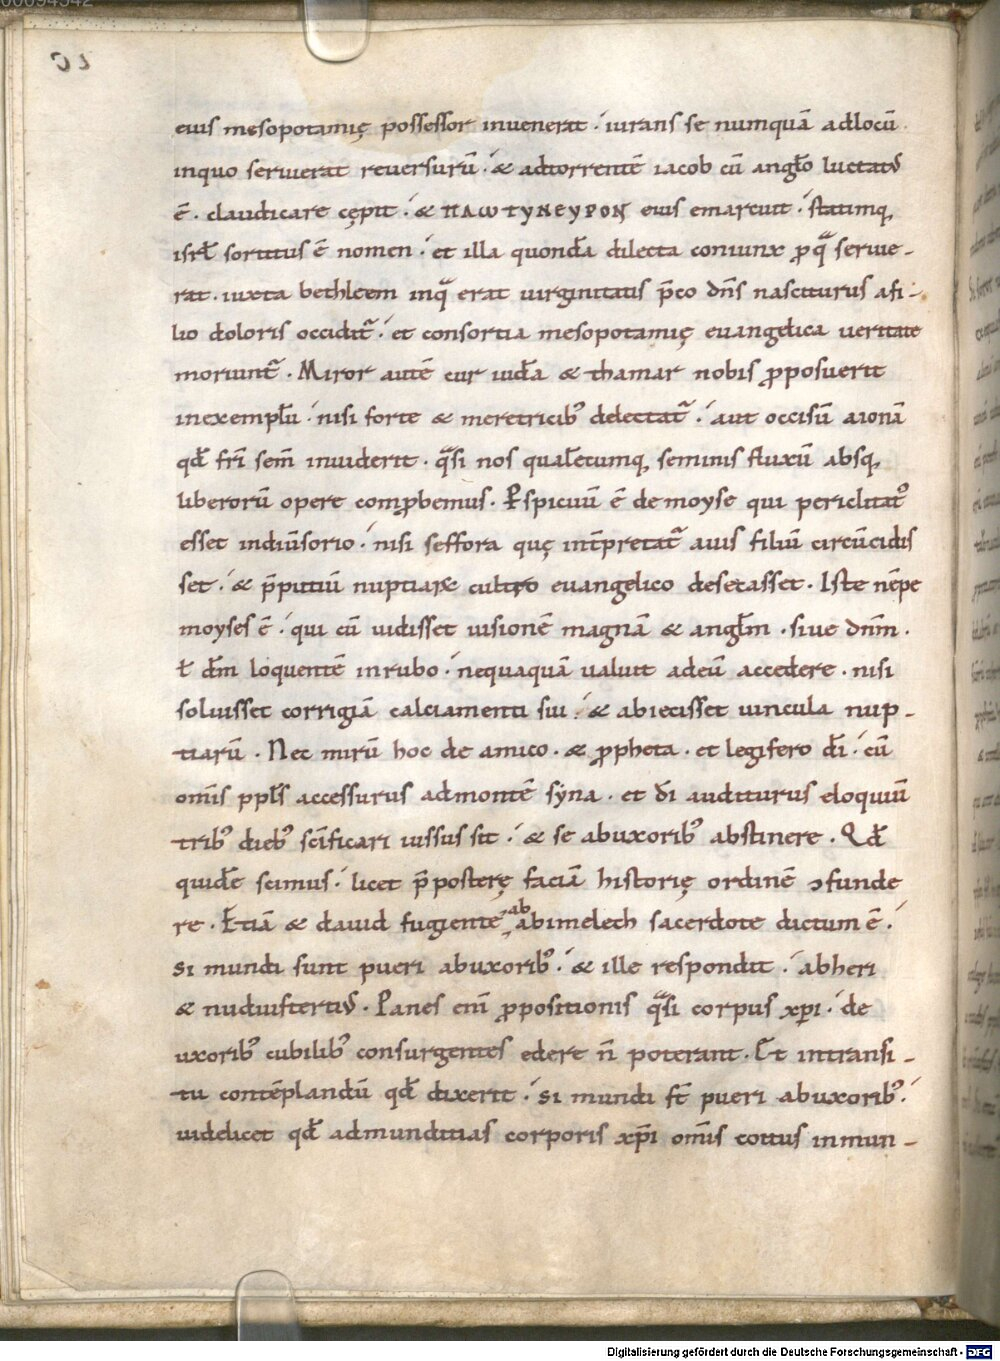 eius mesopotamię possessor inuenerat · iurans se numquā adlocū
inquo seruierat reuersurū · & adtorrentē iacob cū angl̄o luctatꝰ
ē · claudicare cępit · & ΠΛΩΤΥΝΕΥΡΟΝ eius emarcuit · statimq;
isrl̄ sortitus ē nomen · et illa quondā dilecta coniunx ꝓ qua seruie-
rat · iuxta bethleem inqua erat uirginitatis p̄co dn̄s nasciturus afi-
lio doloris occiditᷓ · et consortia mesopotamię euangelica ueritate
moriuntᷓ · Miror autē cur iudā & thamar nobis ꝓposuerit
inexemplū · nisi forte & meretricibꝰ delectatᷓ · aut occisū aionā
qd̄ fr̄i sem̄ inuiderit · qᷓsi nos qualēcumq; seminis fluxū absq;
liberorū opere comꝓbemus · Ꝑspicuū ē de moyse qui periclitatꝰ
esset indiūsorio · nisi seffora quę intp̄retatᷓ auis filiū circūcidis
set · & p̄putiū nuptiarꝝ cultro euangelico desecasset · Iste nēpe
moyses ē · qui cū uidisset uisionē magnā & angl̄m · siue dn̄m ·
ł dm̄ loquentē inrubo · nequaquā ualuit adeū accedere · nisi
soluisset corrigiā calciamenti sui · & abiecisset uincula nup-
tiarū · Nec mirū hoc de amico · & ꝓpheta · et legifero dī · cū
omīs ppl̄s accessurus admontē syna · et dī auditurus eloquiū
tribꝰ diebꝰ sc̄ificari iussus sit · & se abuxoribꝰ abstinere · Qd̄
quidē scimus · licet p̄posterę faciā historię ordinē ɔfunde
re · Etiā & dauid fugientē ab abimelech sacerdote dictum ē ·
si mundi sunt pueri abuxoribꝰ · & ille respondit · abheri
& nudiustertiꝰ · Panes enī ꝓpositionis qᷓsi corpus xp̄i · de
uxoribꝰ cubilibꝰ consurgentes edere n̄ poterant · Et intransi-
tu contēplandū qd̄ dixerit · si mundi st̄ pueri abuxoribꝰ ·
uidelicet qd̄ admunditias corporis xp̄i omīs coitus inmun-
Digitalisierung gefördert durch die Deutsche Forschungsgemeinschaft - DFG